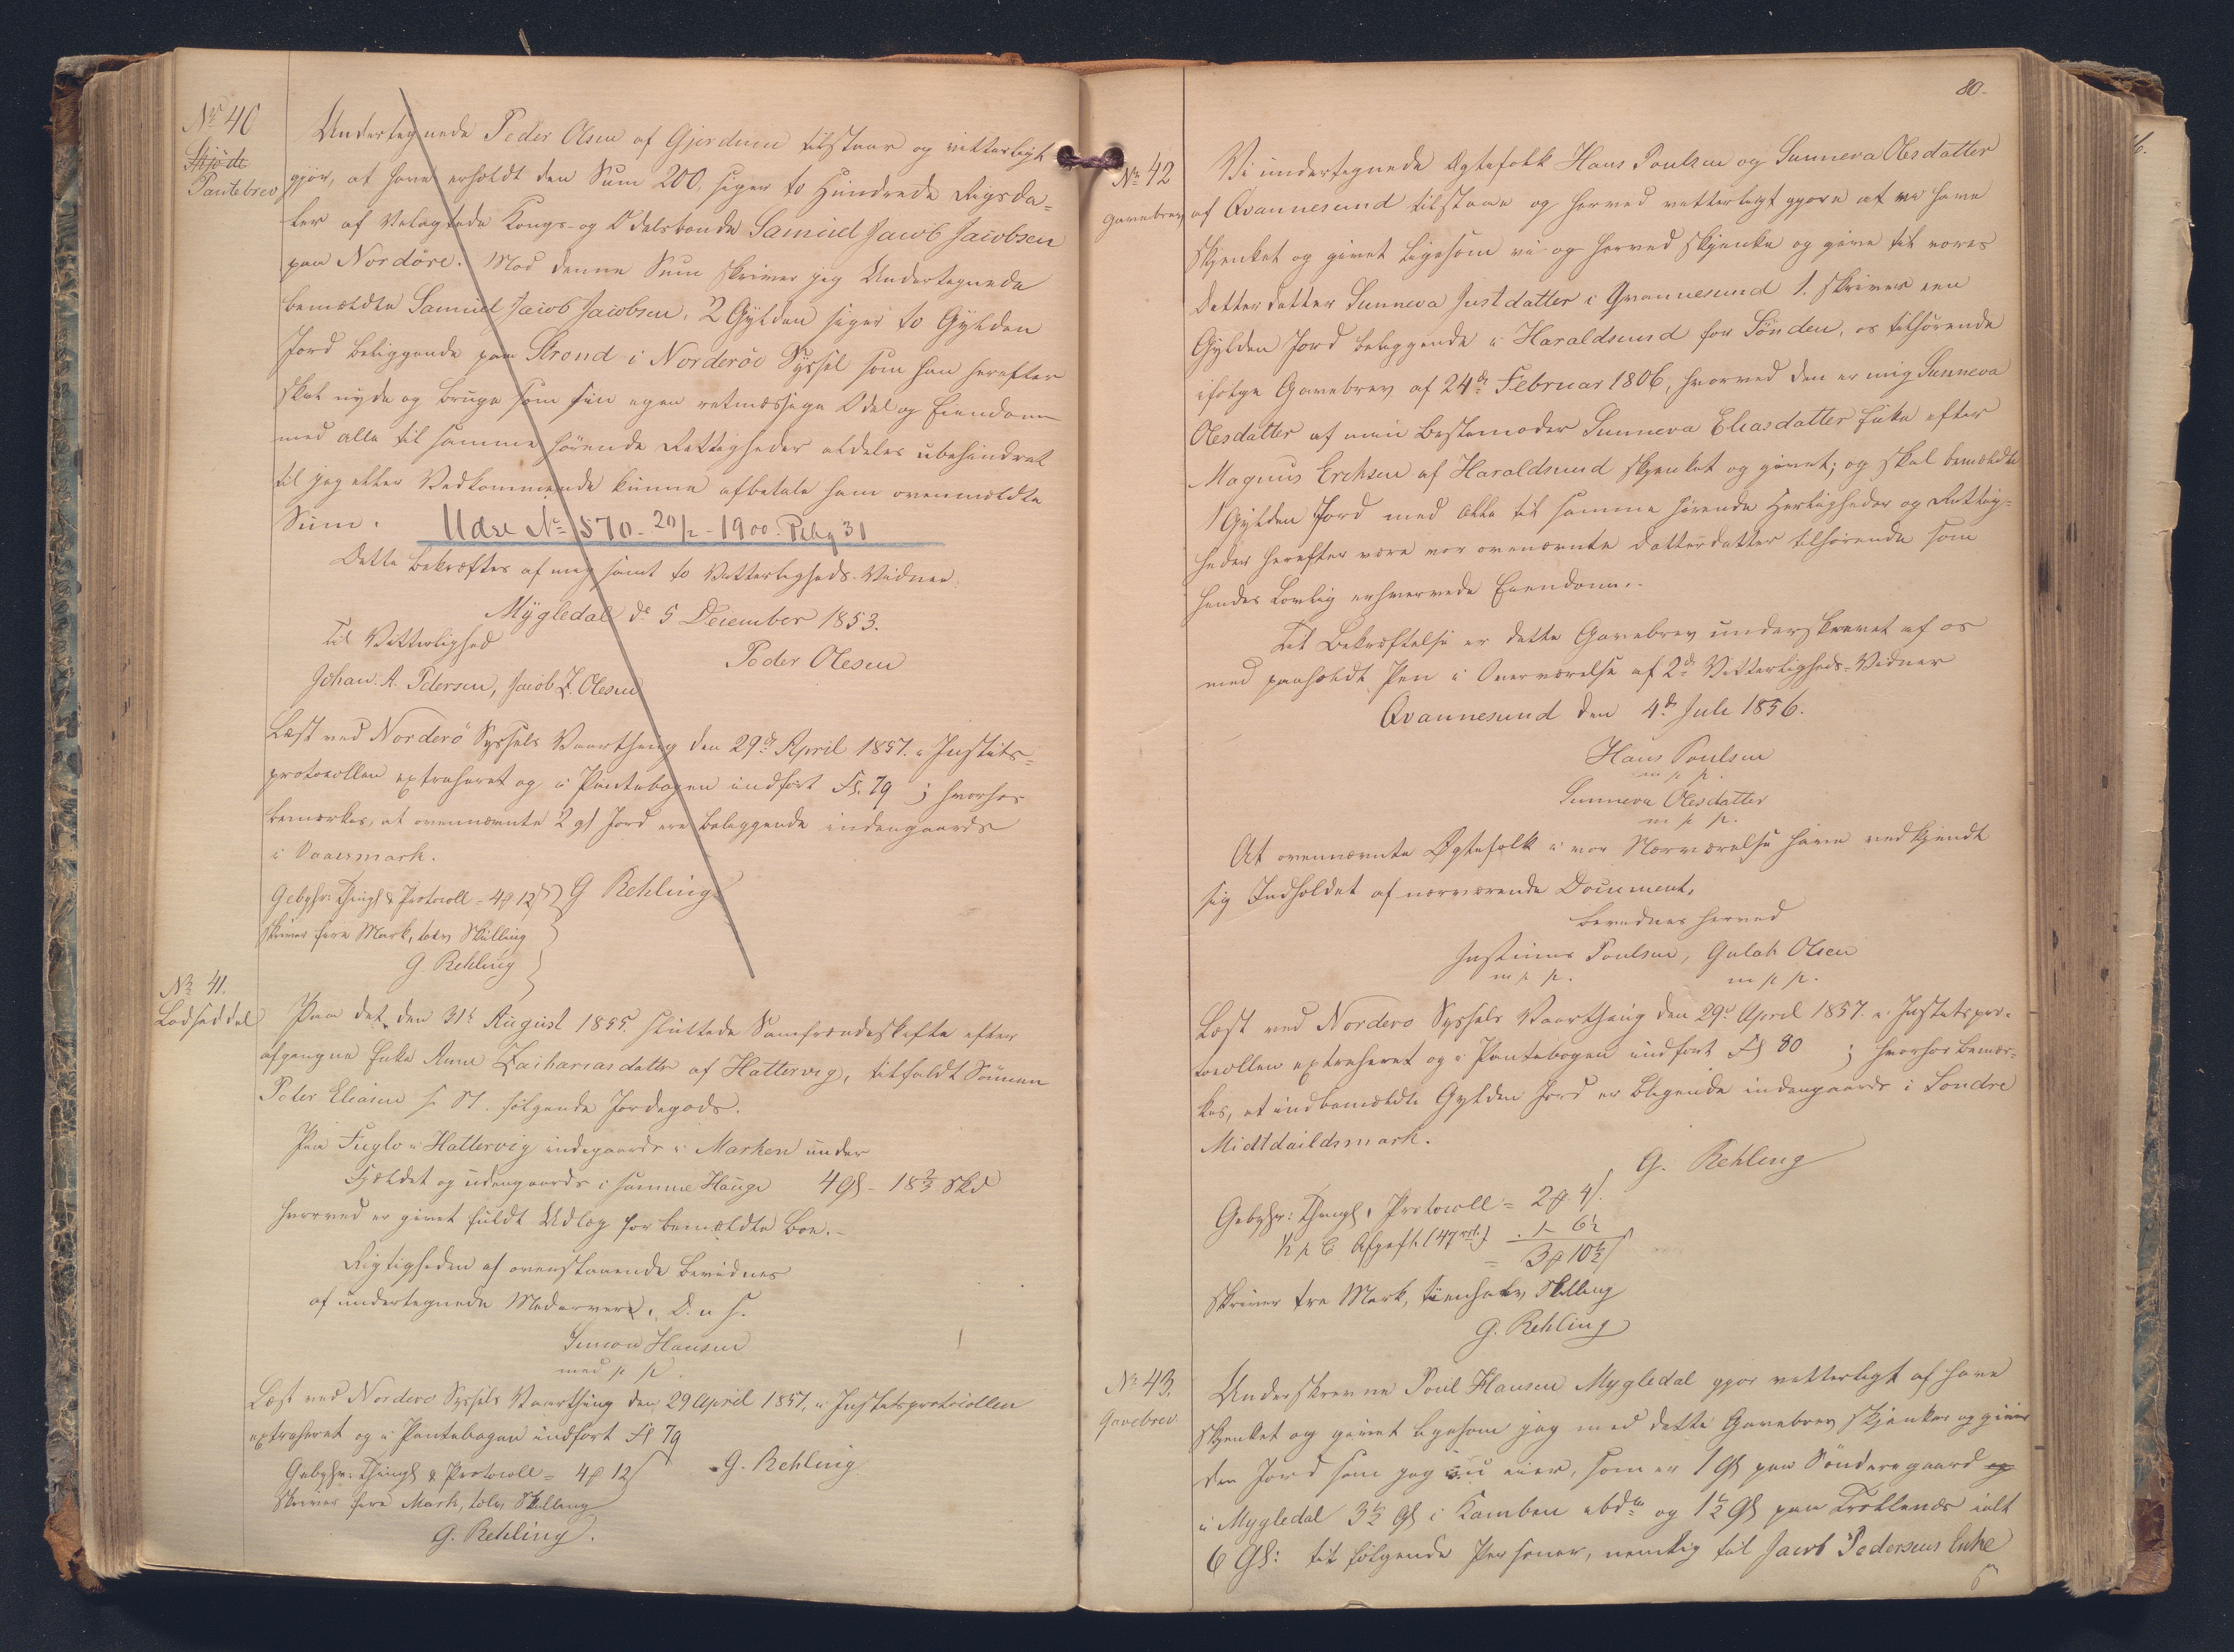 Nr 40
Skjöde
Pantebrev
Undertegnede Peder Olsen af Gjerdum tilstaar og vitterligt
gjør, at have erholdt den Sum 200, siger to Hundrede Rigsda-
ler af Velagtede Kongs- og Odelsbonde Samuel Jacob Jacobsen
paa Nordöre. Mod denne Sum skriver jeg Undertegnede
bemældte Samuel Jacob Jacobsen, 2 Gylden siger to Gylden
Jord beliggende paa Strond i Norderöe Syssel som han herefter
skal nyde og bruge som sin egen retmæssige Odel og Eiendom
med alle til samme hörende Rettigheder aldeles ubehindret
til jeg eller Vedkommende kunne afbetale ham ovenmeldte
Sum.
Udsl No 570 - 20/2 - 1900. Pkbg 31
Dette bekræftes af mig samt to Vitterligheds-Vidner.
Mygledal d. 5 December 1853.
Til Vitterlighed
Peder Olesen
Johan. A. Petersen, Jacob Z. Olesen
Læst ved Norderö Syssels Vaarthing den 29de April 1857. i Justits-
protocollen extraheret og i Pantebogen indfört Fl. 79 ; hvorhos
bemærkes, at ovennævnte 2 gl Jord ere beliggende indengaards
i Vaaesmark.
Gebyhr: Thingl & Protocoll = 4 12 G Rehling
skriver fire Mark, tolv Skilling
G. Rehling
Nr 41.
Lodseddel
Paa det den 31te August 1855. sluttede Samfrændeskifte efter
afgangne Enke Anne Zachariasdatter af Hattervig, tilfaldt Sönnen
Peter Eliasen følgende Jordegods.
Paa Fuglö i Hattervig indegaards i Marken under
Fjeldet og udengaards i samme Hauge 4 Gl - 18 2/3 Skd
hvorved er givet fuldt Udlæg for bemældte Boe.-
Rigtigheden af ovenstaaende bevidnes
af undertegnede Medarving. D. u. s.
Simon Hansen
med p p.
Læst ved Norderö Syssels Vaarthing den 29 April 1857. i Justitsprotocollen
extraheret og i Pantebogen indfört Fl 79
Gebyhr. Thingl & Protocoll = 4 12 G. Rehling
skriver fire Mark, tolv Skilling
G. Rehling.
80.
Nr 42
Gavebrev
Vi undertegnede Ægtefolk Hans Poulsen og Sunneva Olesdatter
af Qvannesund tilstaae og herved vitterligt gjøre at vi have
skjenket og givet ligesom vi og herved skjenke og give til vores
Datterdatter Sunneva Justdatter i Qvannesund 1. skriver een
Gylden Jord beliggende i Haraldsund for Sönden, os tilhörende
ifølge Gavebrev af 24de Februar 1806, hvorved den er mig Sunneva
Olesdatter af min Bestemoder Sunneva Eliasdatter Enke efter
Magnus Erchsen af Haraldsund skjenket og givet; og skal bemældte
1 Gylden Jord med alle til samme hörende Herligheder og Rettig-
heder herefter være vor ovennævnte Datterdatter tilhörende som
hendes lovlig erhvervede Eiendom.-
Til Bekræftelse er dette Gavebrev underskrevet af os
med paaholdt Pen i Overværelse af 2de Vitterligheds-Vidner
Qvannesund den 4de Juli 1856.
Hans Poulsen
m p p.
Sunneva Olesdatter
m p p.
At ovennævnte Ægtefolk i vor Nærværelse have vedkjendt
sig Indholdet af nærværende Document,
bevidnes herved
Justinus Poulsen, Gulak Olsen
m p p. m p p.
Læst ved Norderö Syssels Vaarthing den 29de April 1857. i Justitspro-
tocollen extraheret og i Pantebogen indfört Fl 80 ; hvorhos bemær-
kes, at indbemældte Gylden Jord er beligende indengaards i Sondre
Midtdaildsmark.
G. Rehling
Gebyhr: Thingl, Protocoll = 2 4
1/2 p C Afgift (47 rd) 1 - 6 1/2
= 3 10 1/2
skriver tre Mark, tienhalv Skilling
G. Rehling
Nr 43.
Gavebrev
Underskrevne Poul Hansen Mygledal gjör vitterligt at have
skjenket og givet ligesom jeg med dette Gavebrev skjenker og giver
den Jord som jeg nu eier, som er 1 Gl paa Sönderegaard og
i Mygledal 3 1/2 Gl i Kamben ibd og 1 1/2 Gl paa Tröllenæs ialt
6 Gl: til følgende Personer, nemlig til Jacob Pedersens Enke